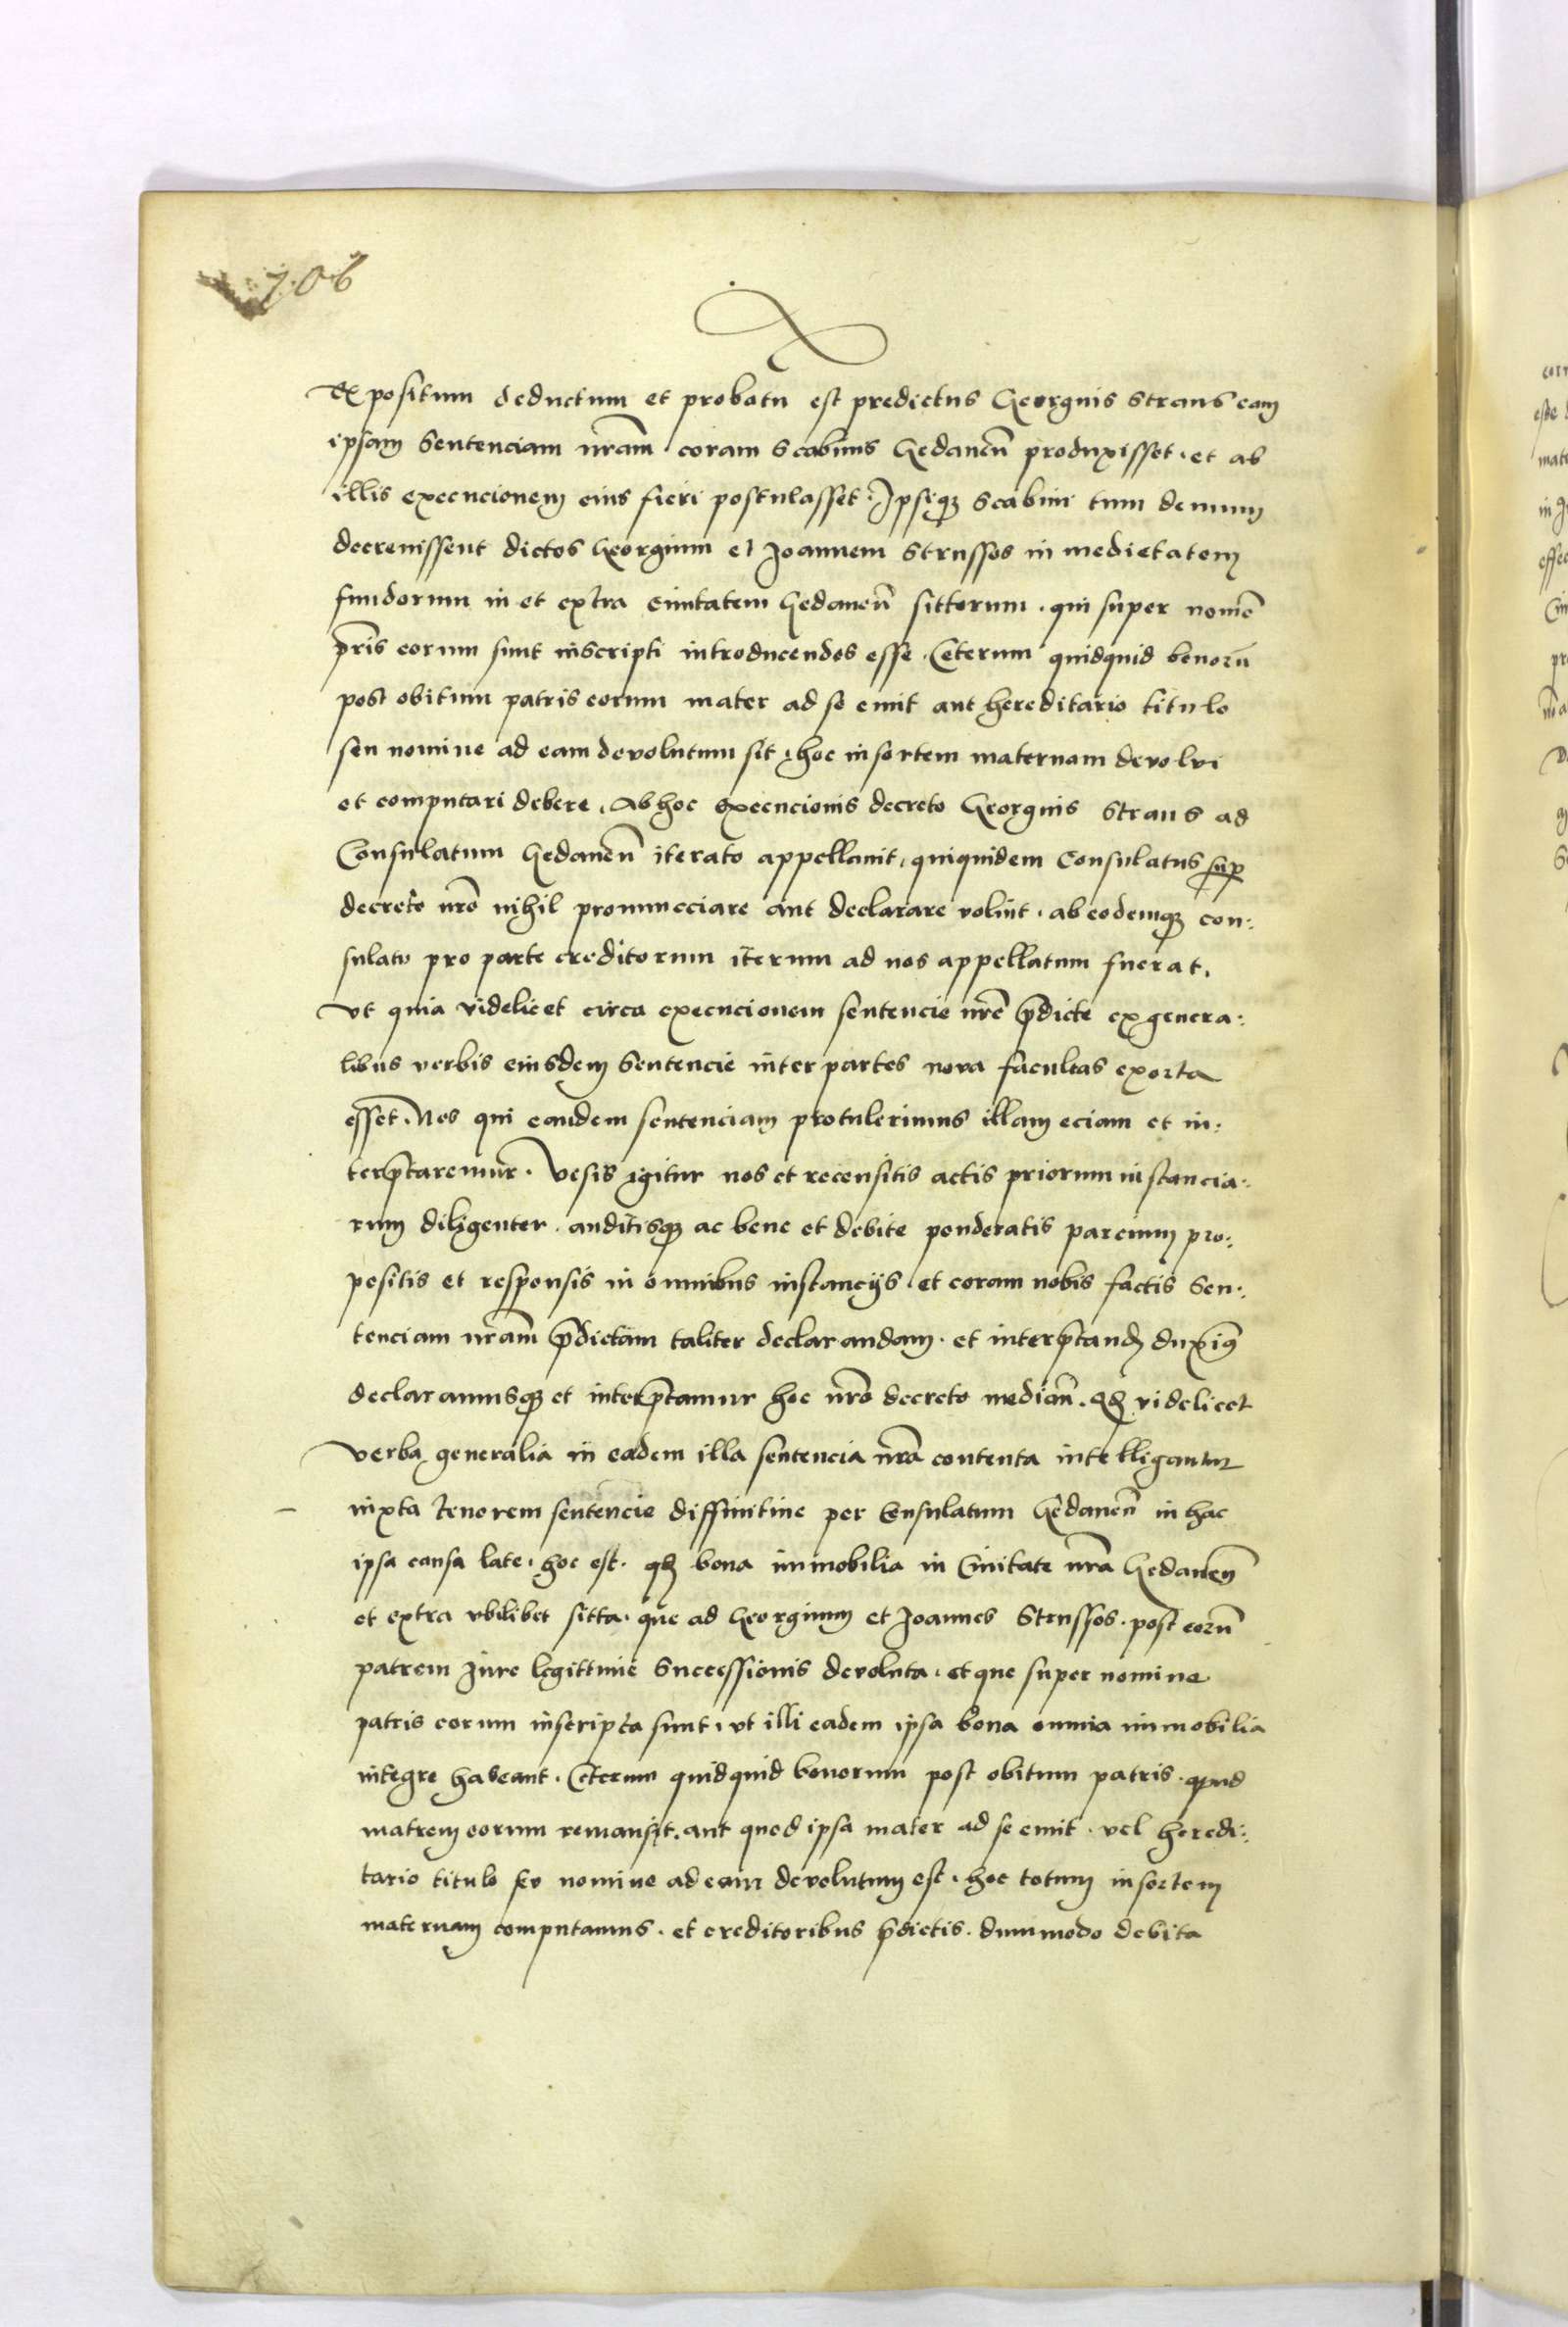 706
Expositum deductum et probatu est predictus Georgius Straus eam
ipsam Sentenciam nr̃am coram Scabinis Gedanen̄ produxisset. et ab
illis execucionem eius fieri postulasset. Ipsiq; Scabini tum demum
decrevissent dictos Georgium et Joannem Strussos in medietatem
fundorum in et extra Civitatem Gedanen̄ sittorum. qui super nomē
p̄ris eorum sunt inscripti introducendos esse. Ceterum quidquid bonorū
post obitum patris eorum mater ad se emit aut hereditario titulo
seu nomine ad eam devolutum sit, hoc in sortem maternam devolvi
et computari debere. Ab hoc execucionis decreto Georgius Straus ad
Consulatum Gedanen̄ iterato appellavit, quiquidem Consulatus sup
decreto nr̃o nihil pronuncciare aut declarare voluit. ab eodemq; con:
sulatu pro parte creditorum iterum ad nos appellatum fuerat.
Vt quia videlicet circa execucionem sentencie nr̃e p̄dicte ex genera:
libus verbis eiusdem Sentencie inter partes nova facultas exorta
esset. Nos qui eandem sentenciam protulerimus illam eciam et in:
terp̄taremur. Vesis igitur nos et recensitis actis priorum instancia:
rum diligenter. auditisq; ac bene et debite ponderatis parcium pro:
positis et responsis in omnibus instancijs et coram nobis factis Sen:
tenciam nr̃am p̄dictam taliter declarandam. et interp̄tand duximꝰ
declaramusq; et interp̄tamur hoc nr̃o decreto median̄. Qd videlicet
verba generalia in eadem illa sentencia nr̃a contenta intelligantur
iuxta tenorem sentencie diffinitive per Consulatum Gedanen̄ in hac
ipsa causa late. hoc est. qd bona immobilia in Civitate nr̃a Gedanen̄
et extra vbilibet sitta. que ad Georgium et Joannes Strussos. post eorū
patrem Jure legittime Successionis devoluta. et que super nomine
patris eorum inscripta sunt. vt illi eadem ipsa bona omnia immobilia
integre habeant. Ceterum quidquid bonorum post obitum patris. apud
matrem eorum remansit. aut quod ipsa mater ad se emit. vel heredi:
tario titulo seu nomine ad eam devolutum est. hoc totum in sortem
maternam computamus. et creditoribus p̄dictis. dummodo debita